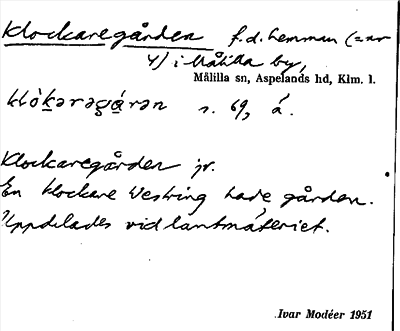 Klockaregården f.d. hemman (=nr
4) i Målilla by,
Målilla sn, Aspelands hd, Klm. l.
s. 69, á.
Klockaregården jr.
En klockare Westring hade gården.
Uppdelades vid lantmäteriet.
Ivar Modéer 1951